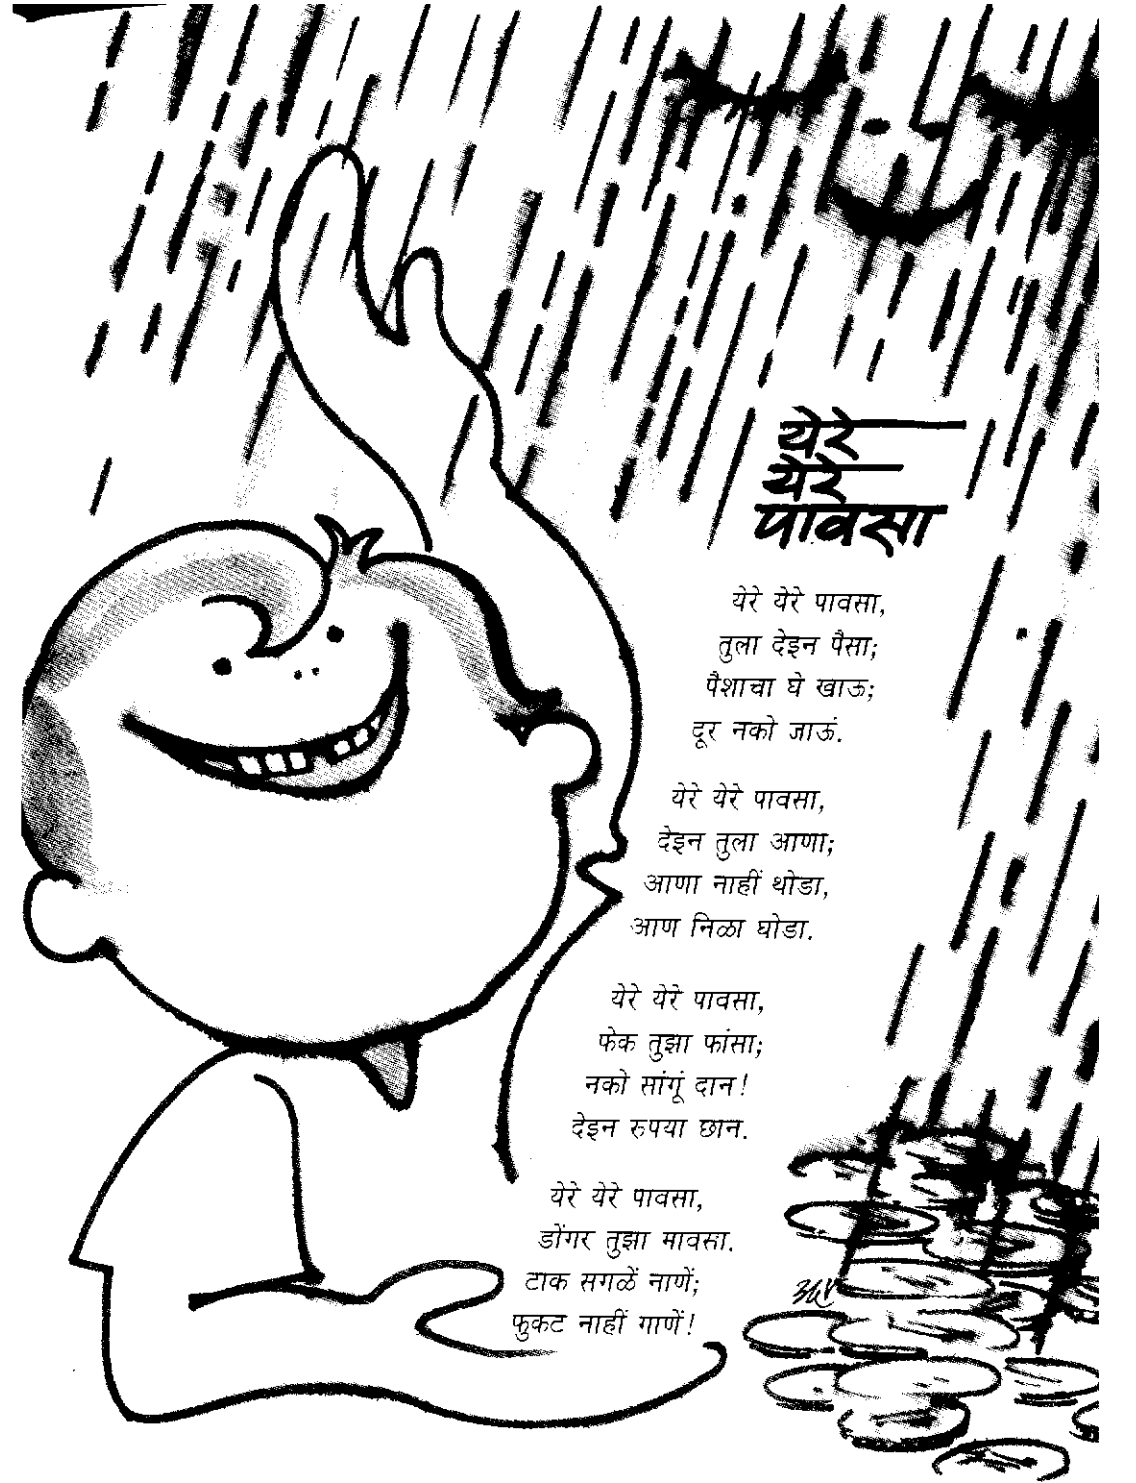 येरे
येरे
पावसा
येरे येरे पावसा,
तुला देइन पैसा;
पैशाचा घे खाऊ;
दूर नको जाऊं.
येरे येरे पावसा,
देइन तुला आणा;
आणा नाहीं थोडा,
आण निळा घोडा.
येरे येरे पावसा,
फेक तुझा फांसा;
नको सांगूं दान!
देइन रुपया छान.
येरे येरे पावसा,
डोंगर तुझा मावसा.
टाक सगळें नाणें;
फुकट नाहीं गाणें!